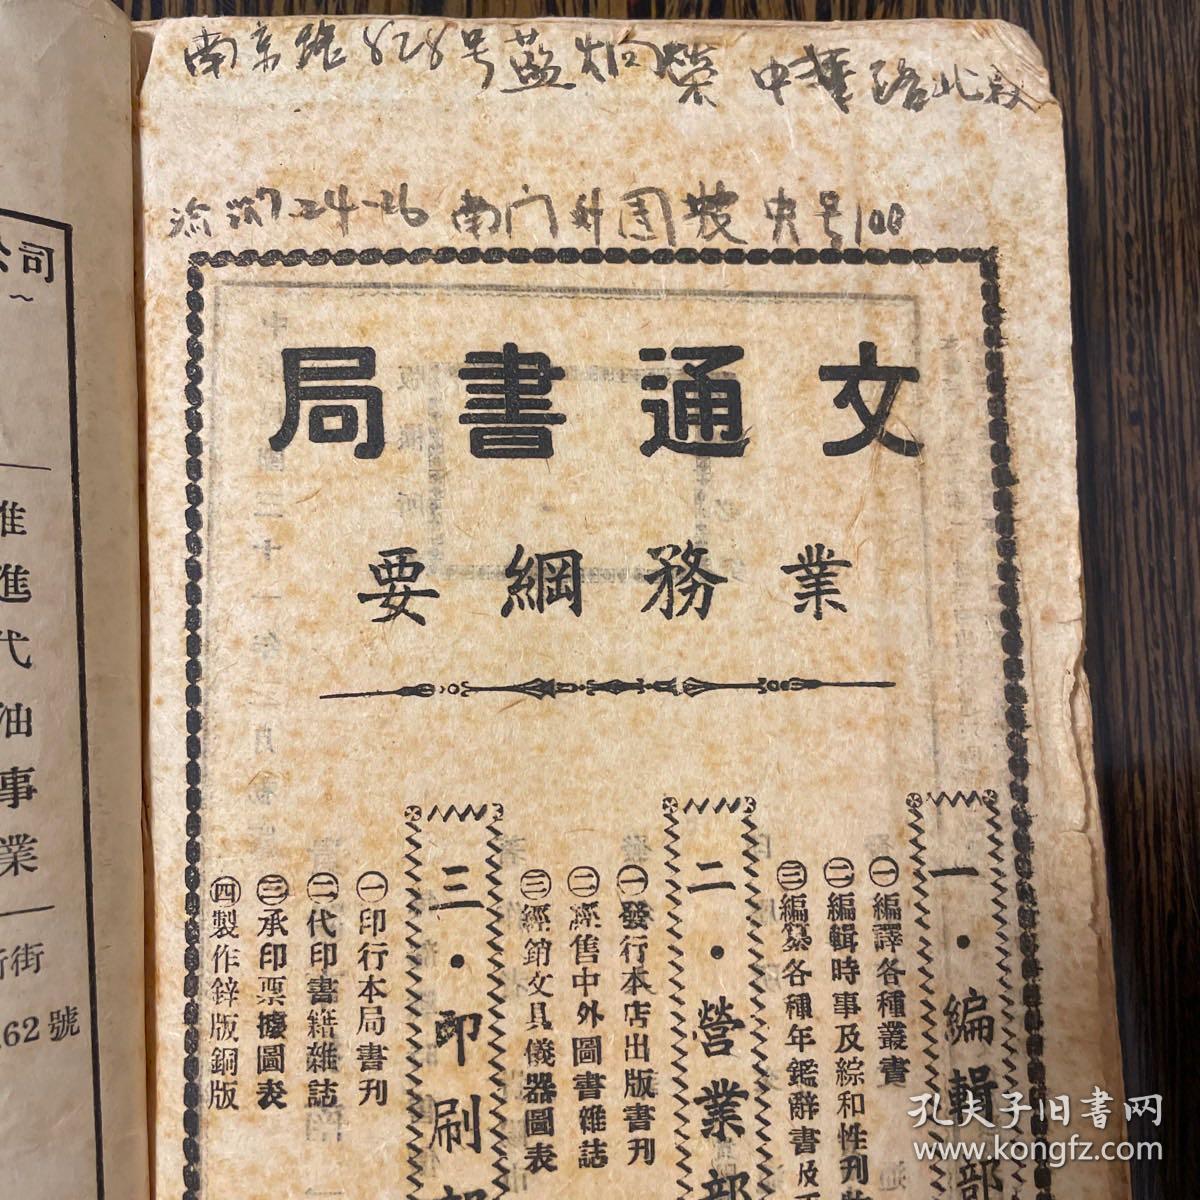 南京路828号藍炯榮 中華路北段
南门外园
100
文通書局
業務綱要
一・編輯部
㊀編譯各種叢書
㊁編輯時事及綜和性刊
㊂編纂各種年鑑辭書及
二・營業部
㊀發行本店出版書刊
㊁經售中外圖書雜誌
㊂經銷文具儀器圖表
三・印刷部
㊀印行本局書刊
㊁代印書籍雜誌
㊂承印票據圖表
㊃製作鋅版銅版
公司
～
進代油事業
街
62號
孔夫子旧書网
www.kongfz.com